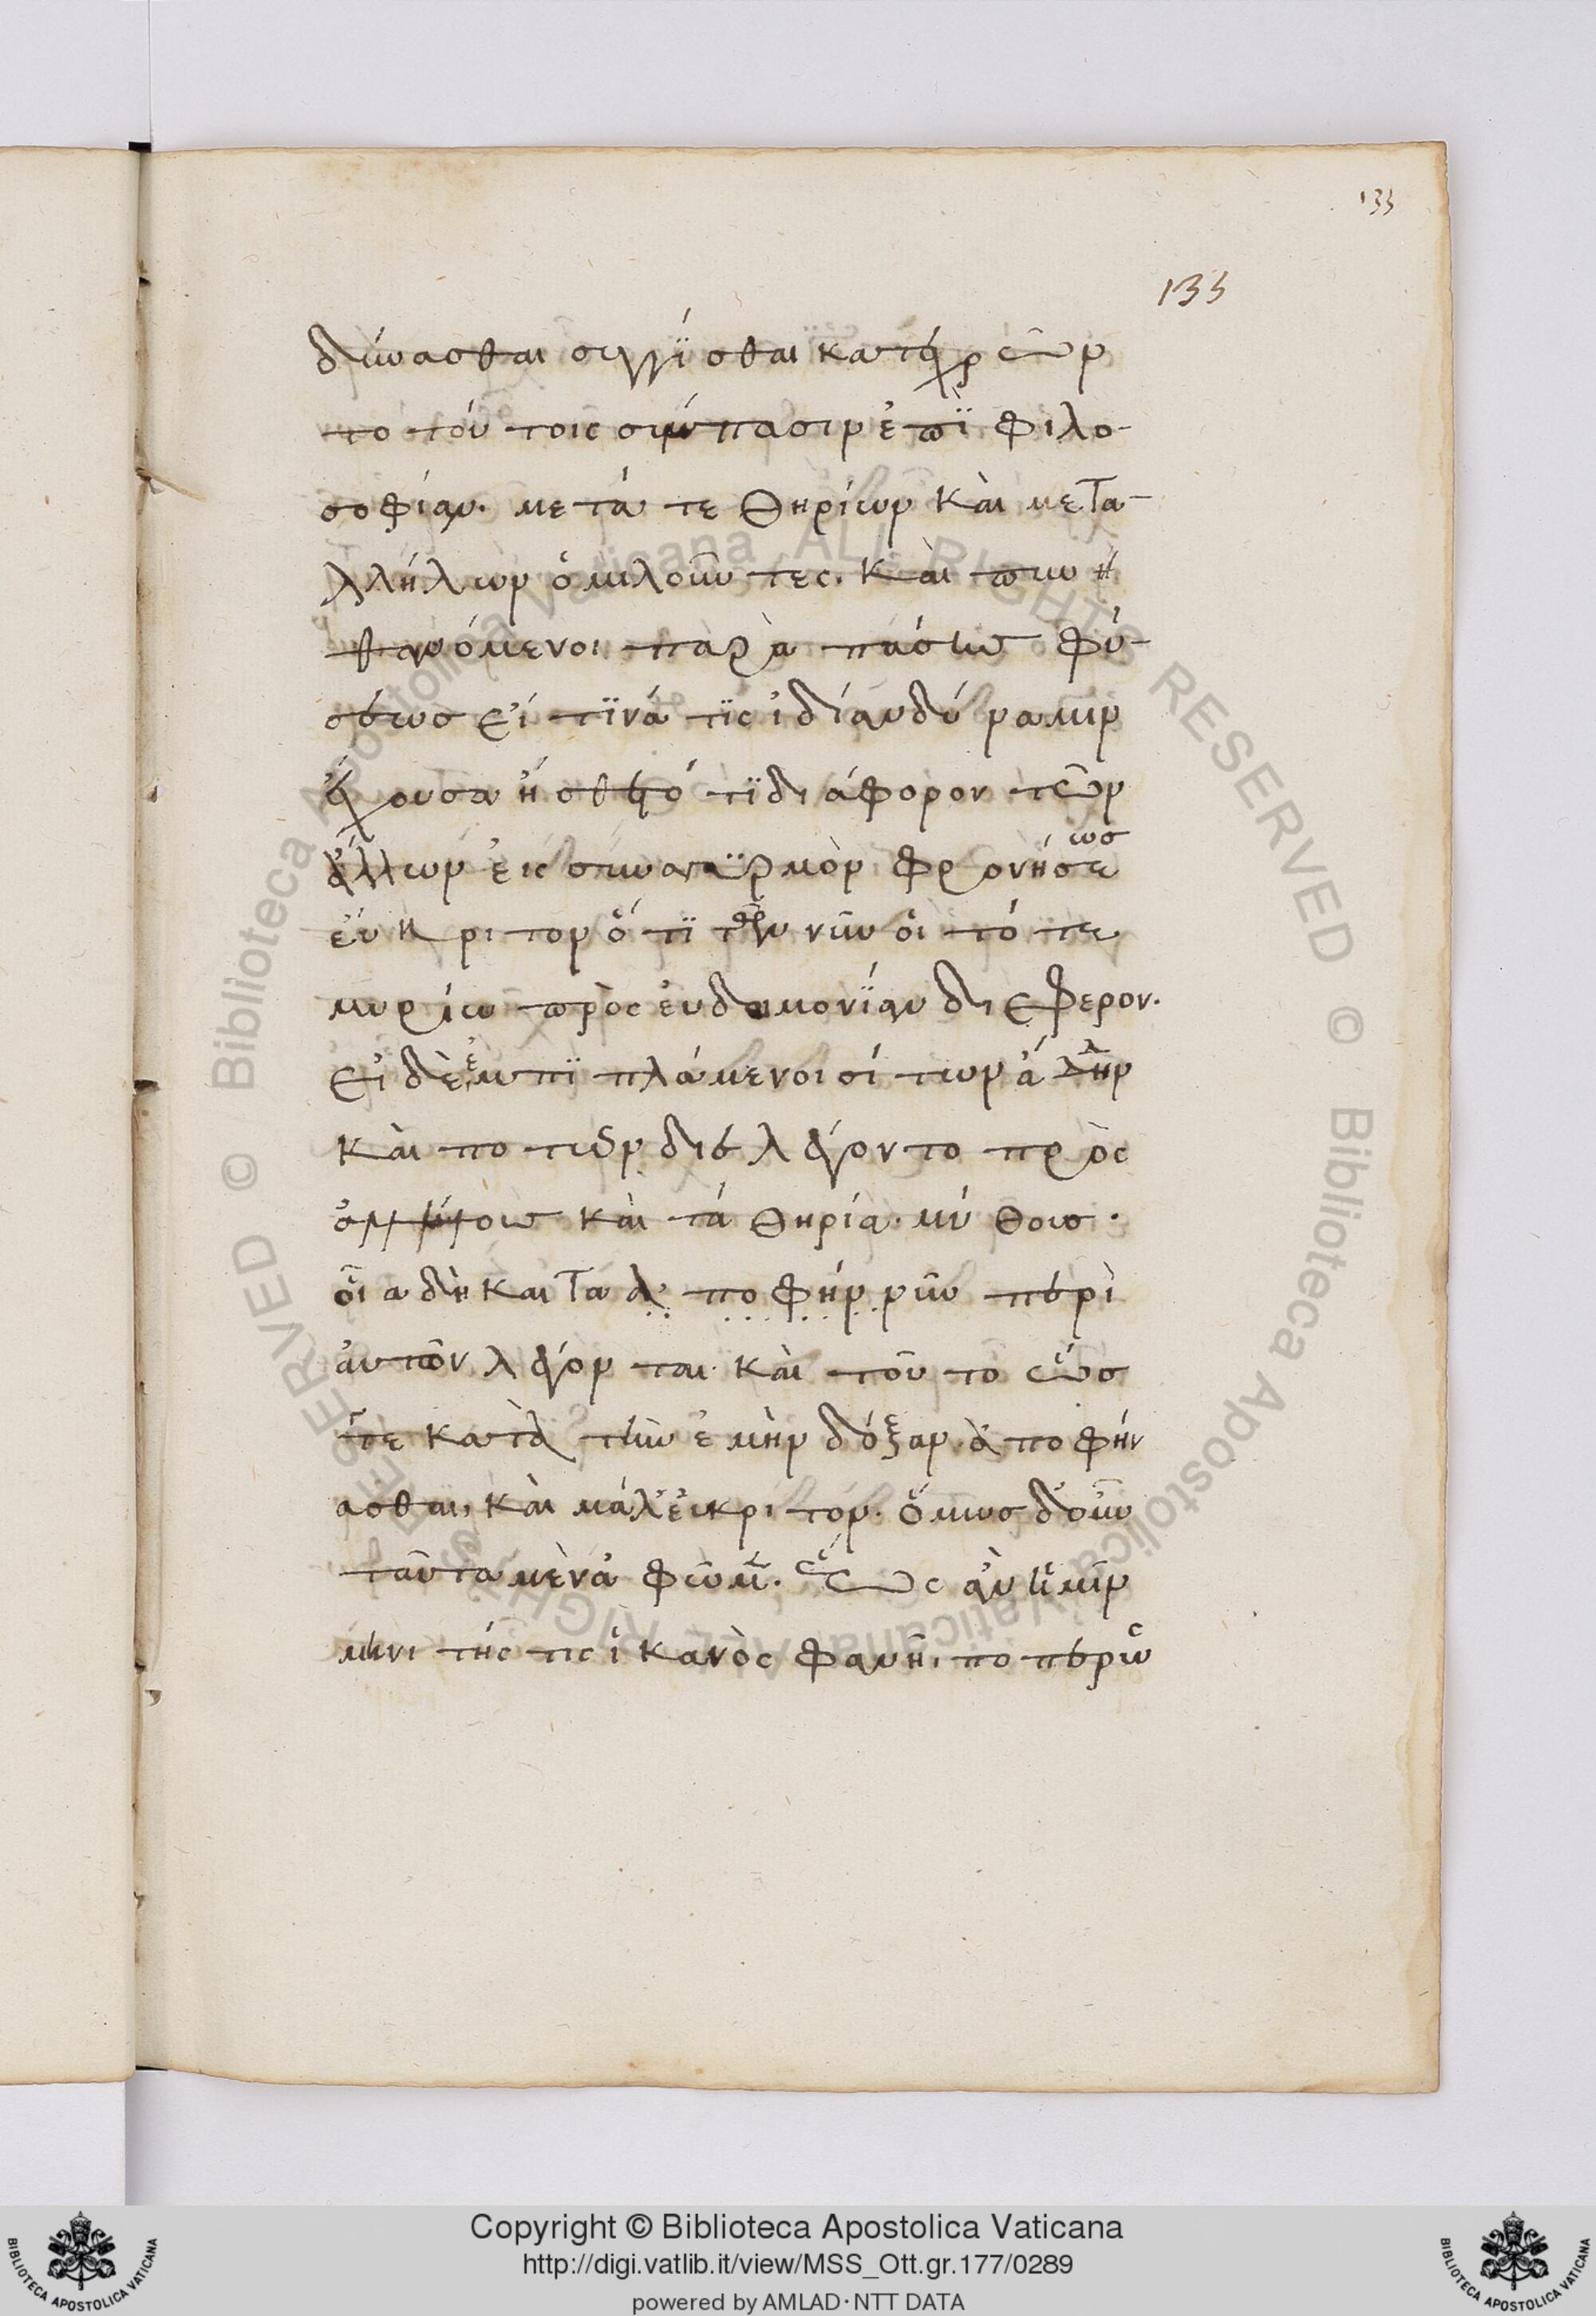 133
133
δύνασθαι συγγί̈σθαι κατεχρῶν
το τούτοις σύμπασιν ἐπὶ̈ φιλο-
σοφίαν. μετά τε θηρίων καὶ μετα-
λλήλων ὁμιλοῦντες. καὶ πυν η
θανόμενοι παρὰ πάσης φύ-
σεως εἴ τϊνά τϊς ἰδίαν δύναμιν
ἔχουσα ἤσθετό τϊ διάφορον τῶν
ἄλλων εἰς συναγυρμὸν φρονήσεως
εὔκριτον ὅτϊ τῶν νῦν οἱ τότε
μυρίω πρὸς εὐδαιμονί̈αν διέφερον.
εἰ δὲ ἐμπϊπλάμενοι σίτων ἄδην
καὶ ποτῶν διελέγοντο πρὸς
ἀλλήλοις καὶ τά θηρία. μύθοις.
οἷα δὴ καὶ τα λ ποφήν νῦν περὶ
αὐτῶν λέγονται. καὶ τοῦτο ὥς
γε κατὰ τὴν ἐμὴν δόξαν ἀποφήν
ασθαι, καὶ μάλ' εὔκριτον. ὅμως δ' οὖν
ταῦτα μὲν ἀφῶμεν. ἕως ἂν ἡμῖν
μηνυτής τις ἱκανὸς φανῆ, ποτέρως
Copyright © Biblioteca Apostolica Vaticana
http://digi.vatlib.it/view/MSS_Ott.gr.177/0289
powered by AMLAD·NTT DATA
BIBLIOTECA APOSTOLICA VATICANA
BIBLIOTECA APOSTOLICA VATICANA
© Biblioteca Apostolica Vaticana ALL RIGHTS RESERVED © Biblioteca Apostolica Vaticana ALL RIGHTS RESERVED